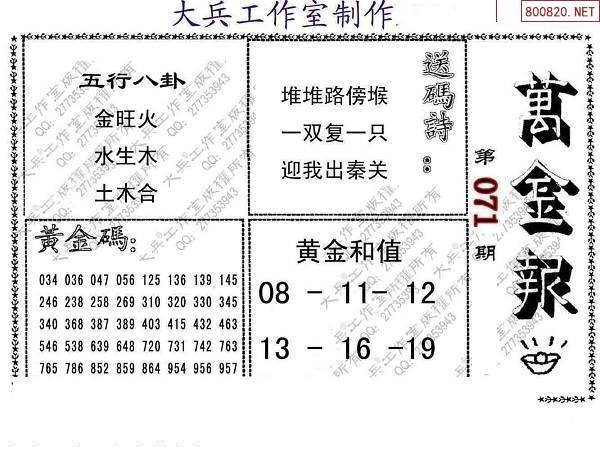 大兵工作室制作
800820.NET
五行八卦
金旺火
水生木
土木合
送碼詩：
堆堆路傍堠
一双复一只
迎我出秦关
萬金报
第071期
黃金碼：
034 036 047 056 125 136 139 145
246 238 258 269 310 320 330 345
340 368 387 389 403 415 432 463
546 538 639 648 720 731 742 763
765 786 852 859 864 954 956 957
黄金和值
08 - 11- 12
13 - 16 -19
大兵工作室版權所有
QQ: 277353943